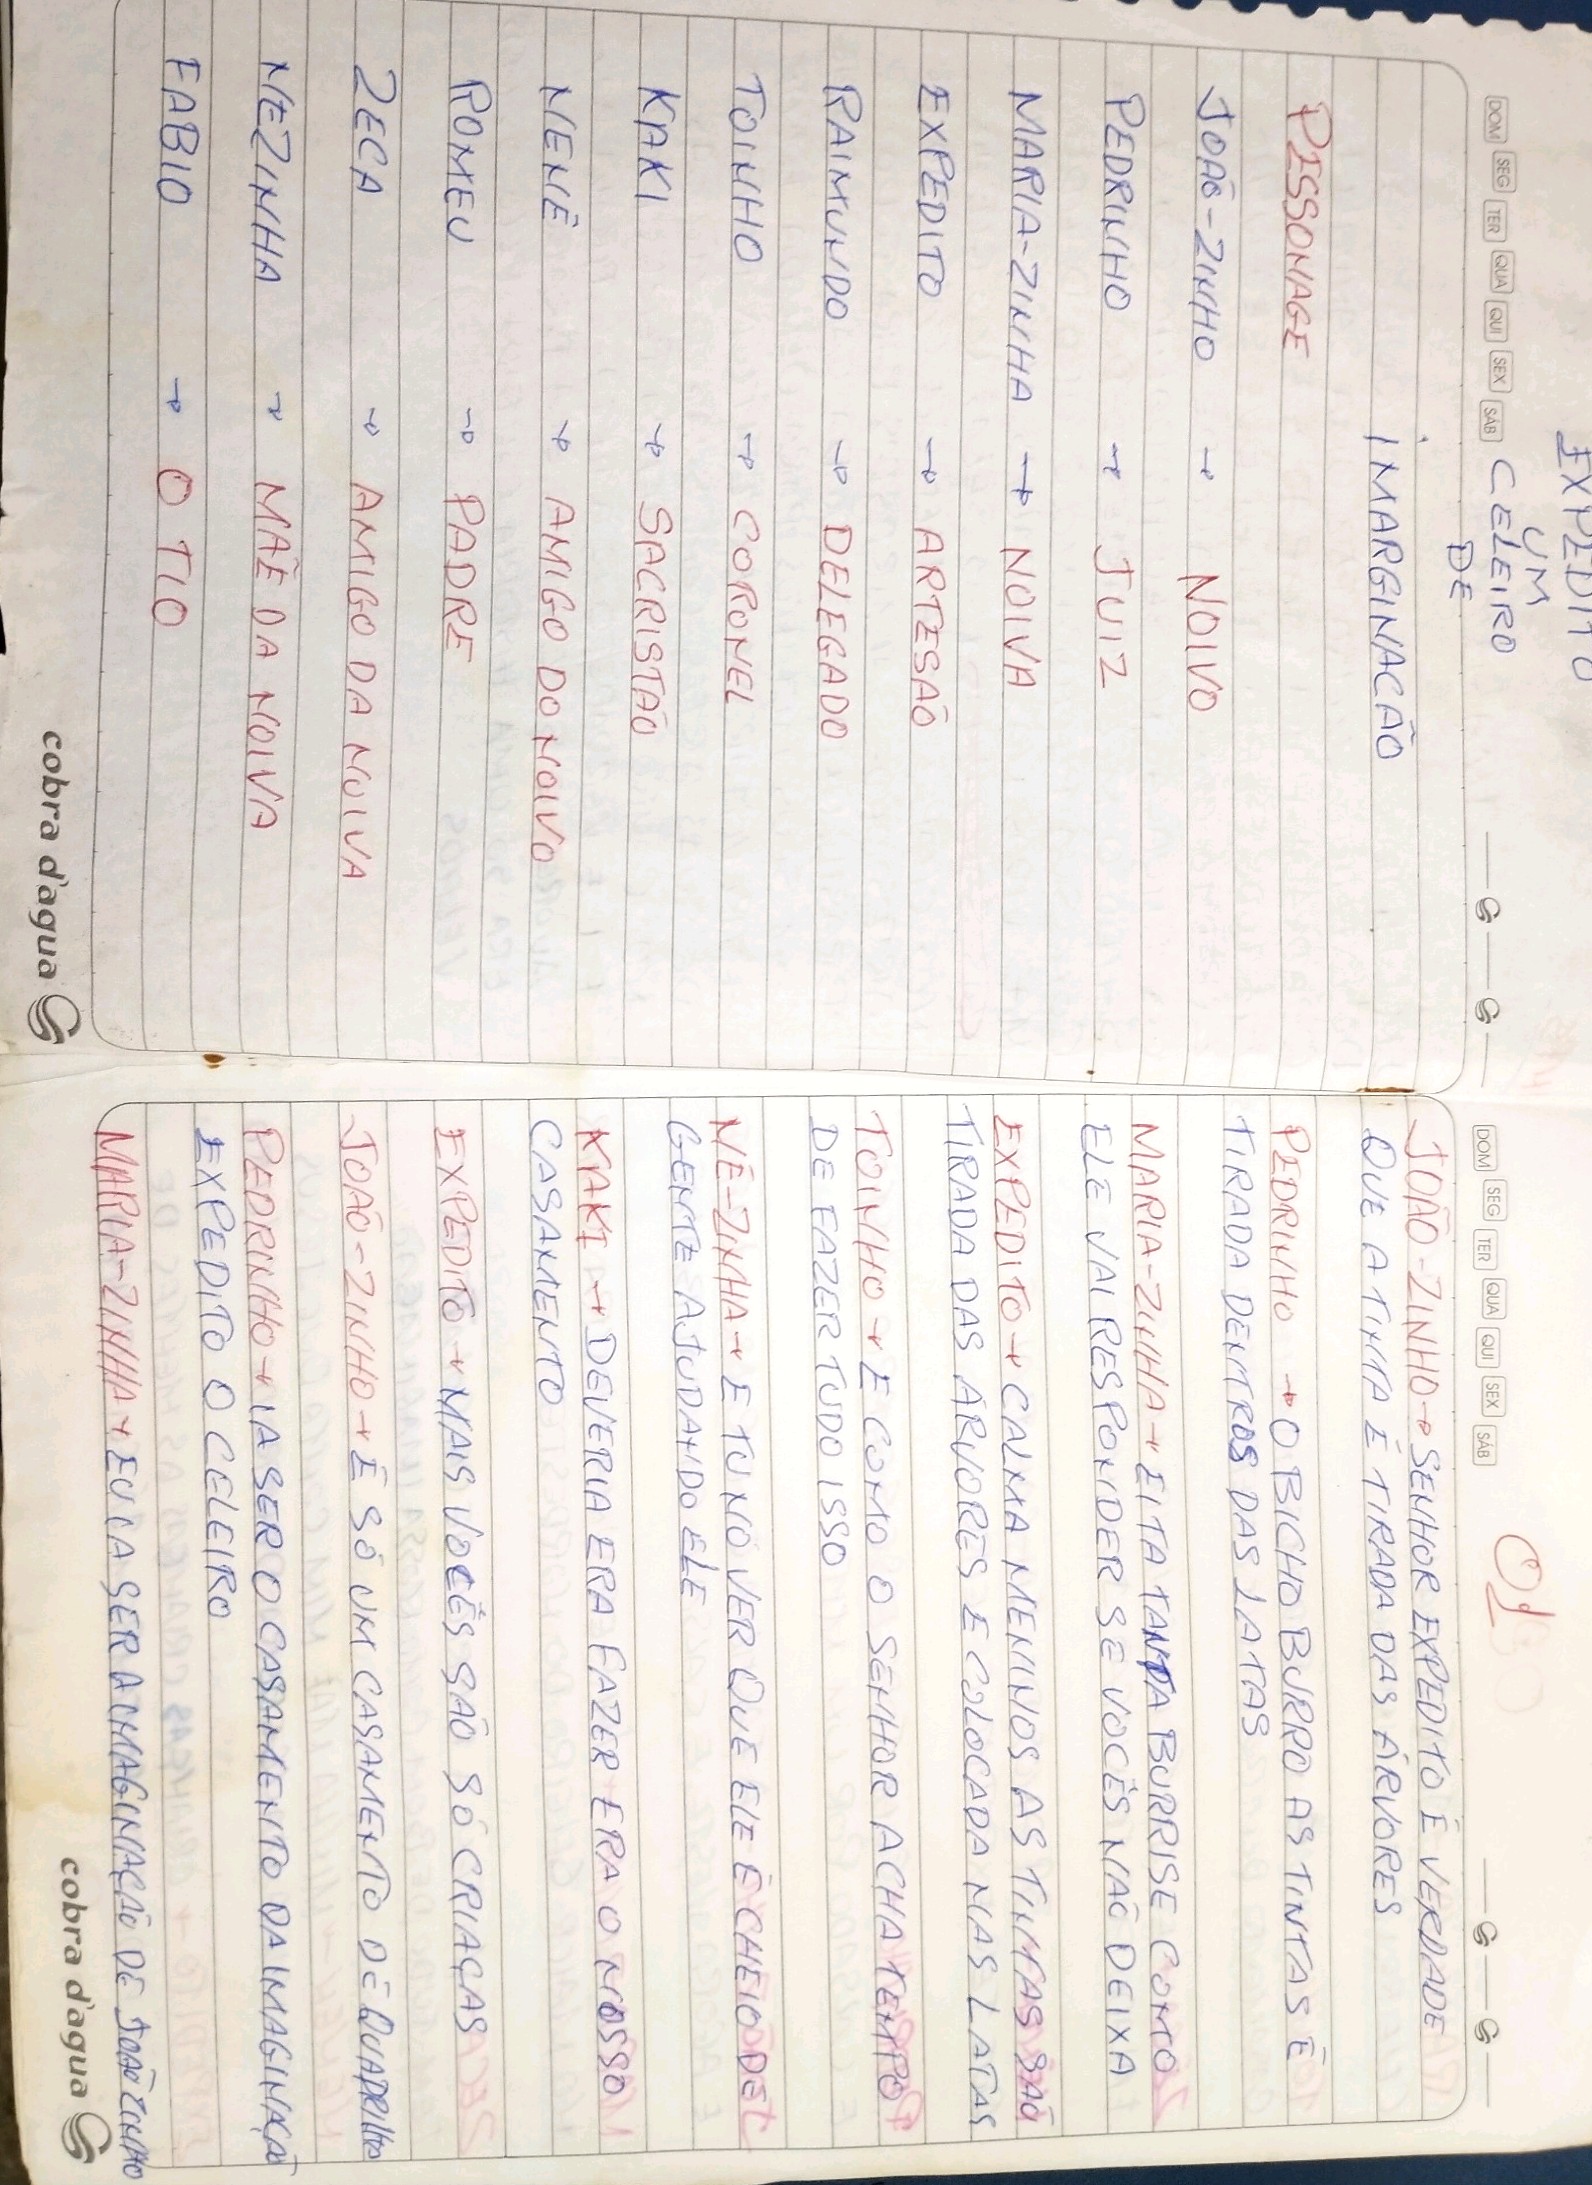 EXPEDITO
UM
DOM SEG TER QUA QUI SEX SÁB CELEIRO
DE
IMARGINACÃO
PESSONAGE
JOÃO-ZINHO → NOIVO
PEDRINHO → JUIZ
MARIA-ZINHA → NOIVA
EXPEDITO → ARTESÃO
RAIMUNDO → DELEGADO
TOINHO → CORONEL
KAKI → SACRISTÃO
NENÊ → AMIGO DO NOIVO
ROMEU → PADRE
ZECA → AMIGO DA NOIVA
NEZINHA → MÃE DA NOIVA
FABIO → O TIO
cobra d'agua
DOM SEG TER QUA QUI SEX SÁB
01
JOÃO-ZINHO → SENHOR EXPEDITO É VERDADE
QUE A TINTA É TIRADA DAS ÁRVORES
PEDRINHO → O BICHO BURRO AS TINTAS É
TIRADA DENTROS DAS LATAS
MARIA-ZINHA → EITA TANTA BURRISE COMO
ELE VAI RESPONDER SE VOCÊS NÃO DEIXA
EXPEDITO → CALMA MENINOS AS TINTAS SÃO
TIRADA DAS ÁRVORES E COLOCADA NAS LATAS
TOINHO → E COMO O SENHOR ACHA TEMPO
DE FAZER TUDO ISSO
NÊ-ZINHA → E TU NÓ VER QUE ELE É CHEIO DE
GENTE AJUDANDO ELE
KAKI → DEVERIA ERA FAZER ERA O NOSSO
CASAMENTO
EXPEDITO → MAIS VOCÊS SÃO SÓ CRIAÇAS
JOÃO-ZINHO → É SÓ UM CASAMENTO DE QUADRILHA
PEDRINHO → IA SER O CASAMENTO DA IMAGINAÇÃO
EXPEDITO O CELEIRO
MARIA-ZINHA → EU IA SER A IMAGINAÇÃO DE JOÃO ZINHO
cobra d'agua